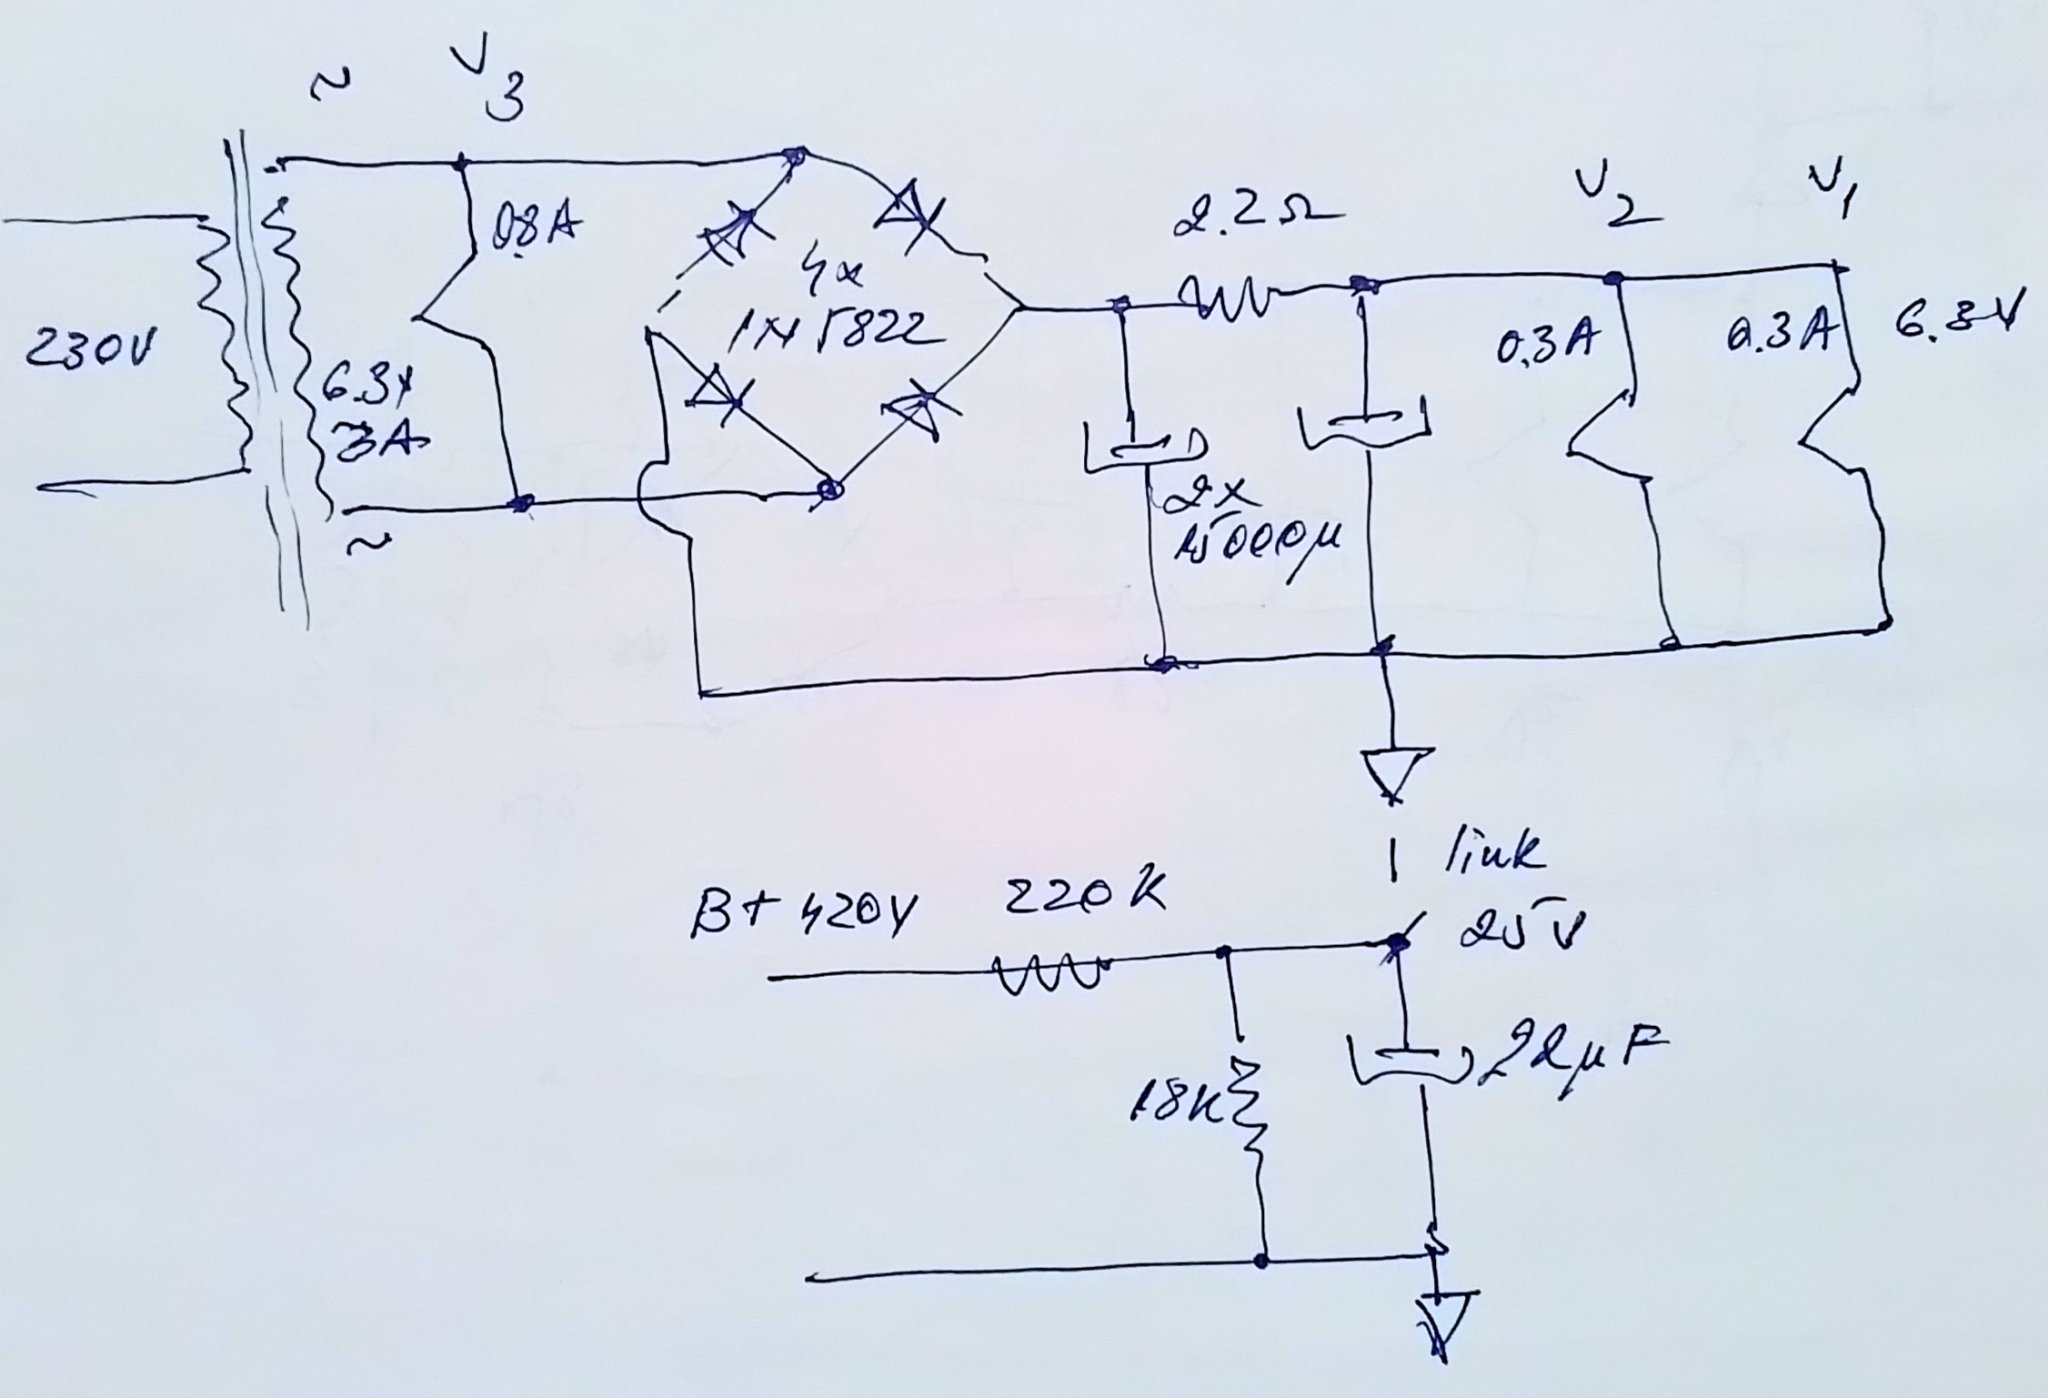 ~ V3
0.8A
230V
6.3V
3A
~
4x
1N5822
2.2Ω
2x
15000µ
V2
V1
0.3A
0.3A
6.3V
link
25V
B+ 420V
220K
18K
22µF